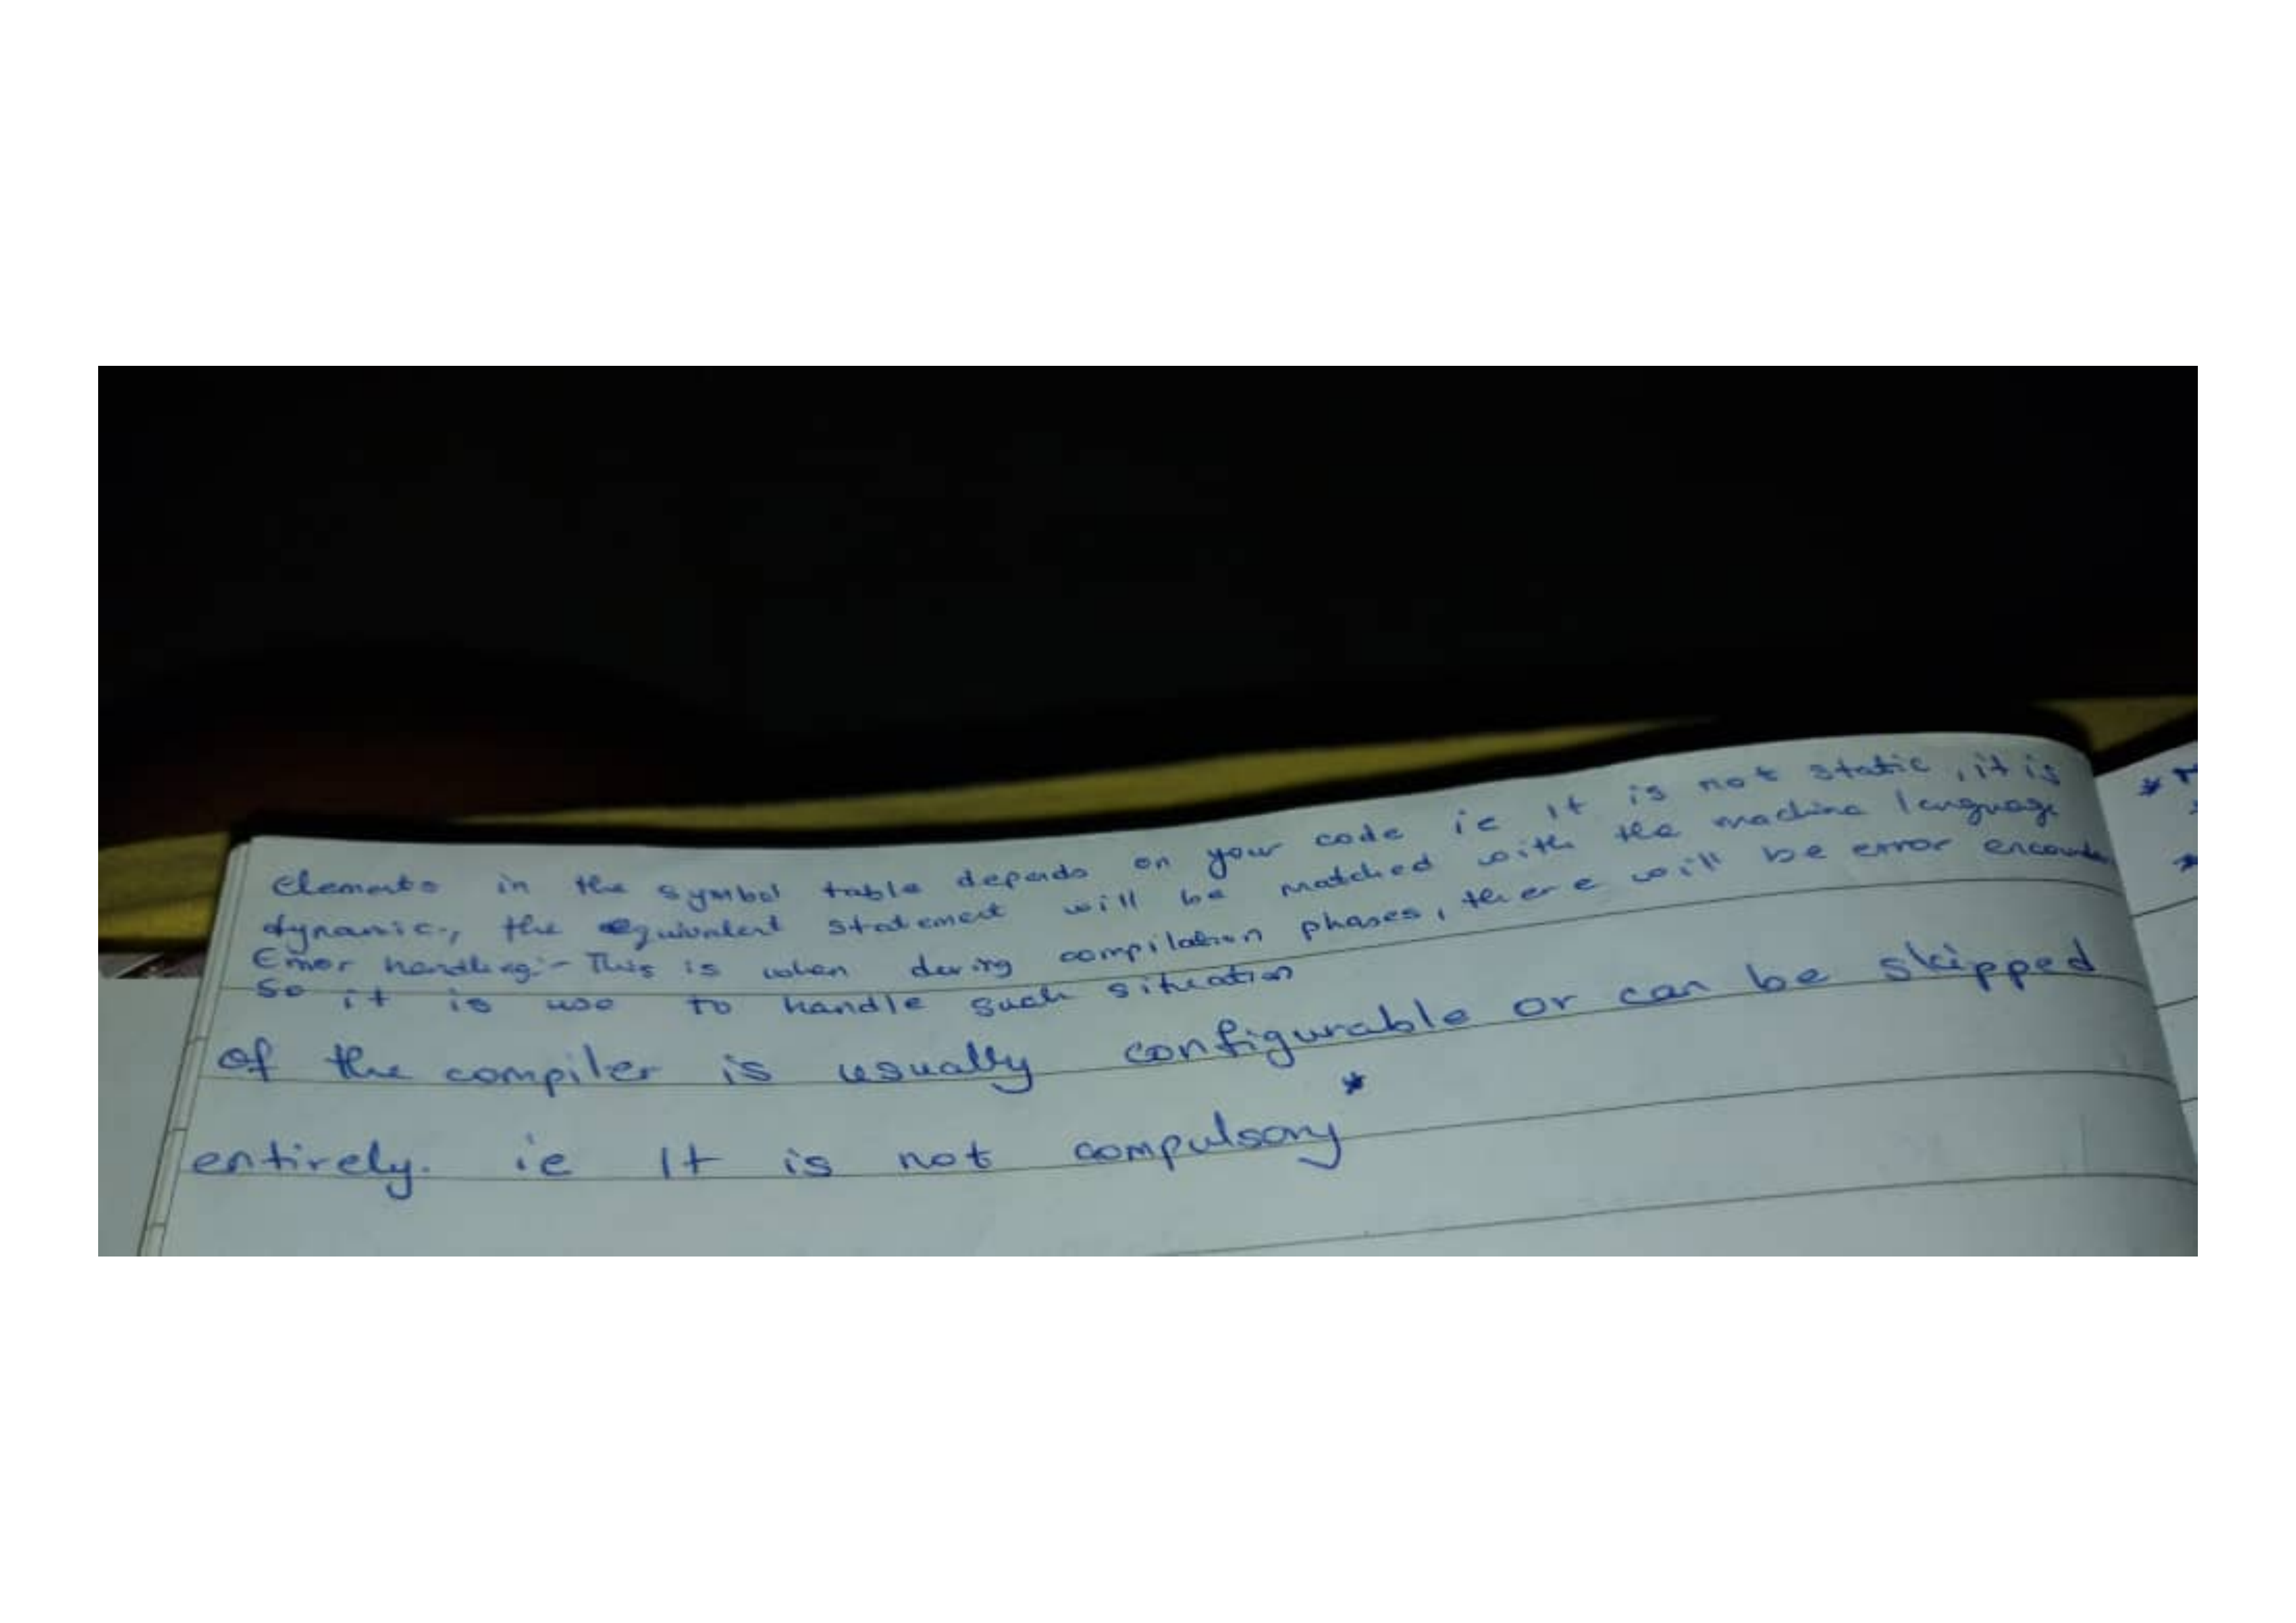 Elements in the symbol table depends on your code ie It is not static, it is
dynamic, the equivalent statement will be matched with the machine language
Error handling:- This is when during compilation phases, there will be error
So it is use to handle such situation
of the compiler is usually configurable or can be skipped
entirely. ie It is not compulsory*